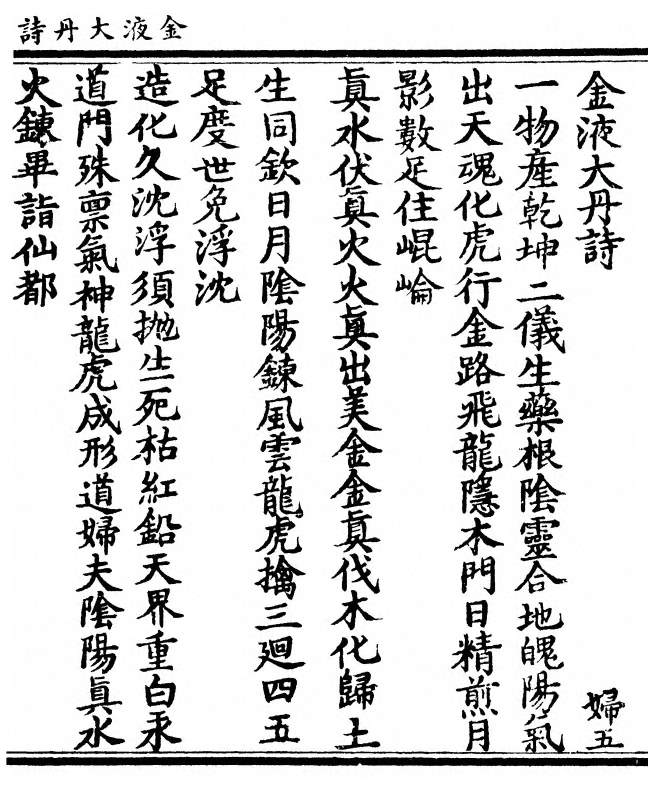 金液大丹詩
金液大丹詩　婦五
一物產乾坤二儀生藥根陰靈合地魄陽氣
出天魂化虎行金路飛龍隱木門日精煎月
影數足住崐崘
真水伏真火火真出美金金真伐木化歸土
生同欽日月陰陽鍊風雲龍虎擒三廻四五
足度世免浮沈
造化久沈浮須拋生死枯紅鉛天界重白汞
道門殊禀氣神龍虎成形道婦夫陰陽真水
火鍊畢詣仙都